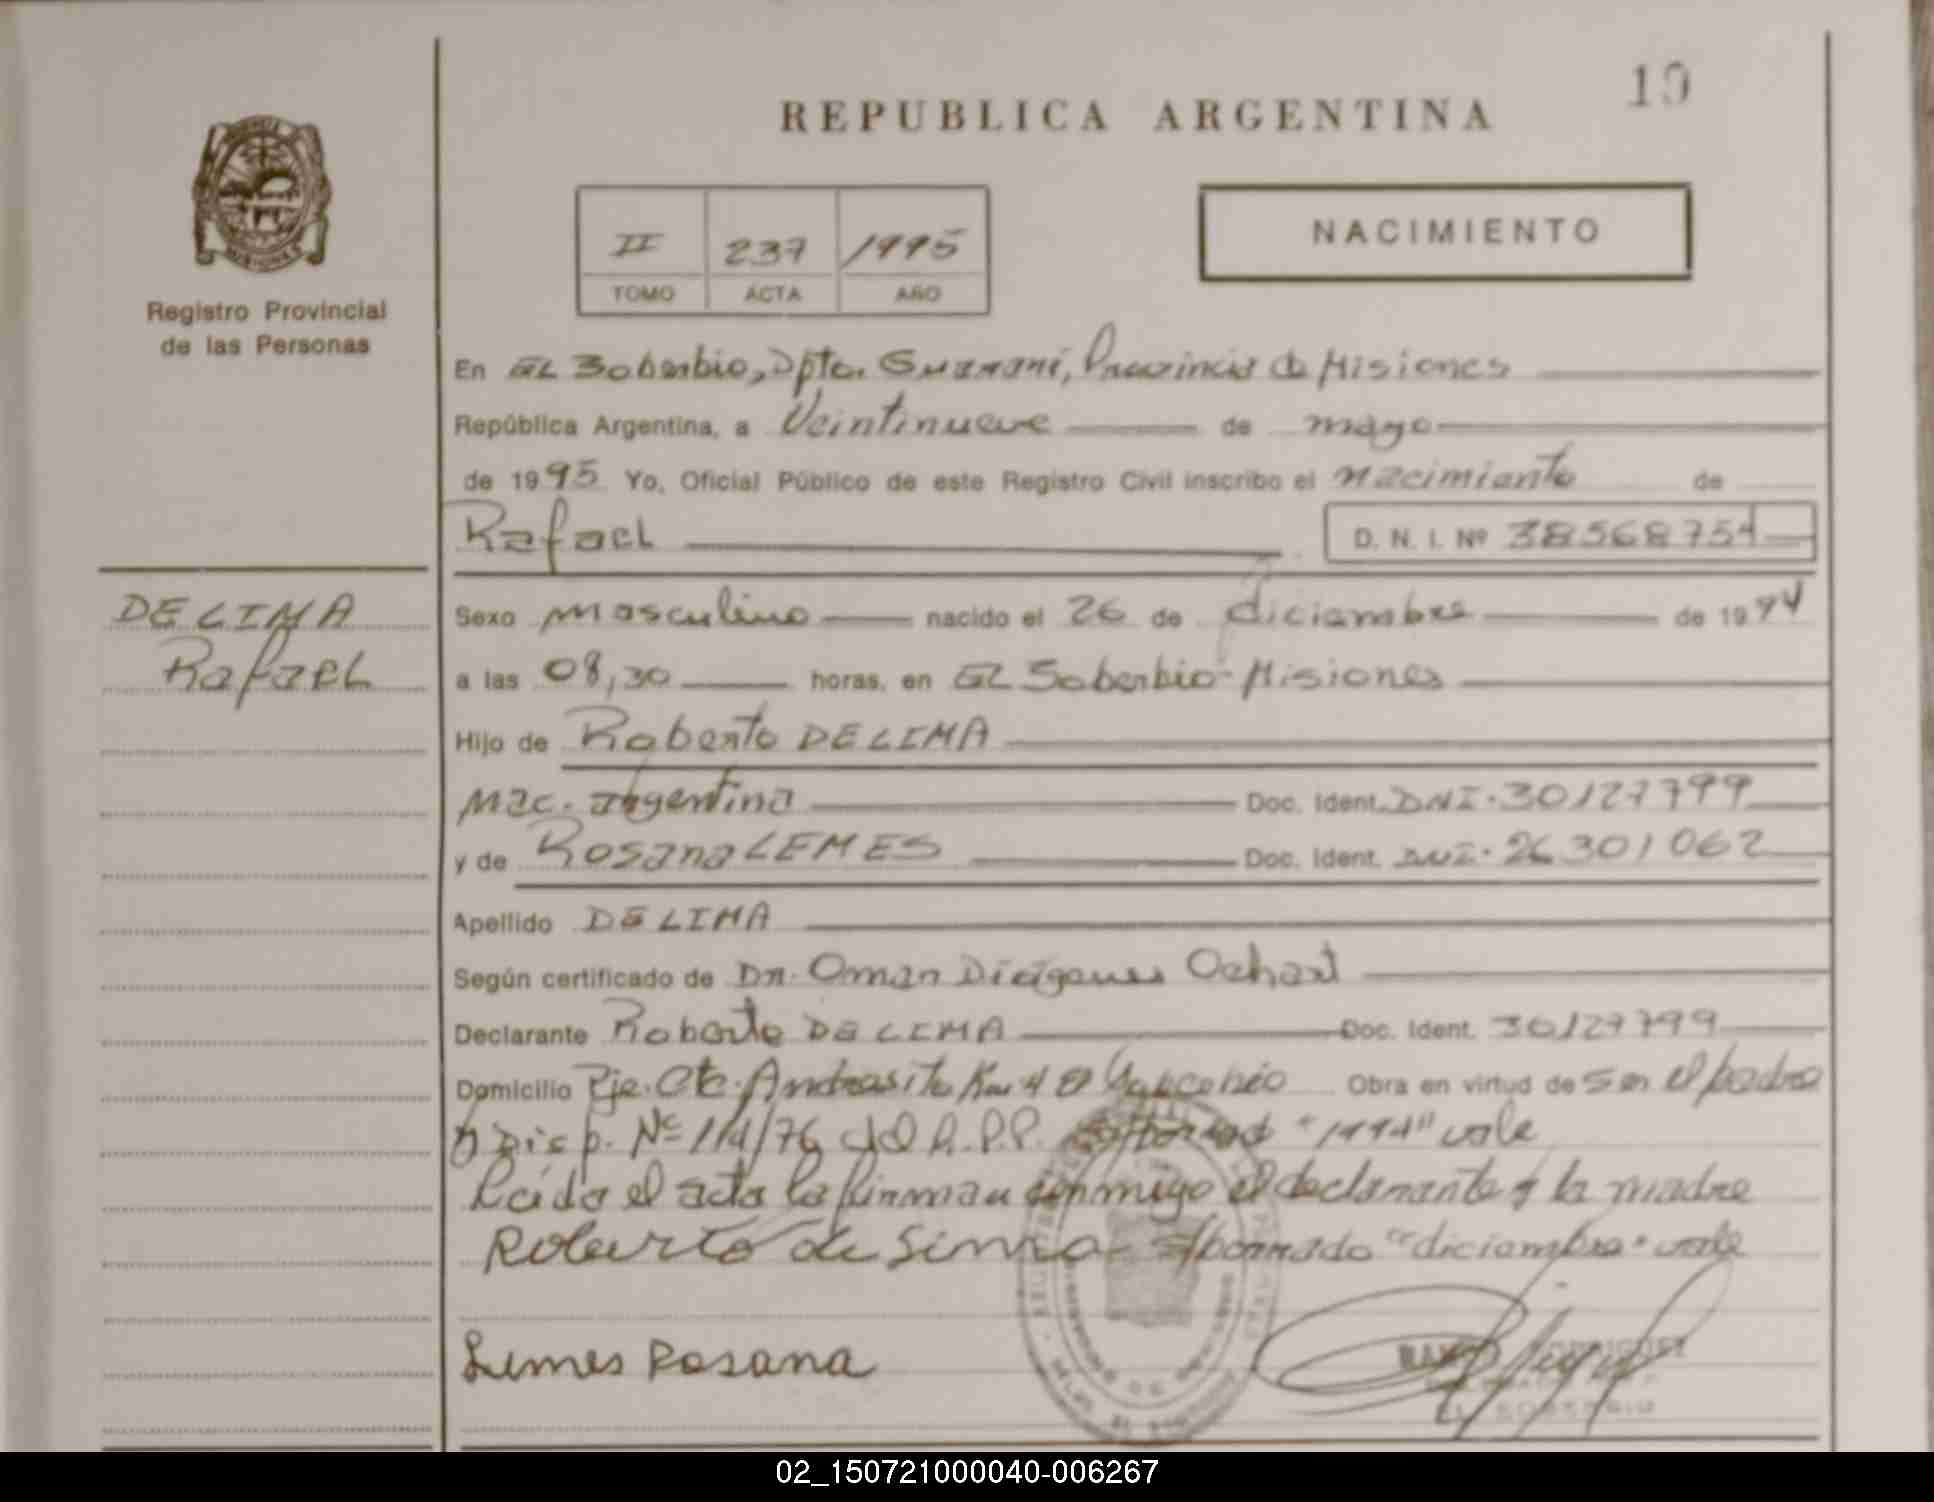 10
REPUBLICA ARGENTINA
II 237 1995
TOMO ACTA AÑO
NACIMIENTO
MISIONES
Registro Provincial
de las Personas
En EL Soberbio, Dpto. Guaraní, Provincia de Misiones
República Argentina, a Veintinueve de mayo
de 1995 Yo, Oficial Público de este Registro Civil inscribo el nacimiento de
Rafael D. N. I. Nº 38568754
DE LIMA
Rafael
Sexo masculino nacido el 26 de diciembre de 1994
a las 08,30 horas, en El Soberbio-Misiones
Hijo de Roberto DE LIMA
Nac. argentina Doc. Ident. DNI. 30127799
y de Rosana LEMES Doc. Ident. DNI. 26301062
Apellido DE LIMA
Según certificado de Dr. Omar Diógenes Ochart
Declarante Roberto DE LIMA Doc. Ident. 30127799
Domicilio Pje. Cte. Andresito Km 4 El Obra en virtud de Ser el padre
y Disp. Nº 114/76 del R.P.P. "1994" vale
Leída el acta la firman conmigo el declarante y la madre
Roberto de Lima S/borrado "diciembre" vale
Limes Rosana
EL SOBERBIO
02_150721000040-006267